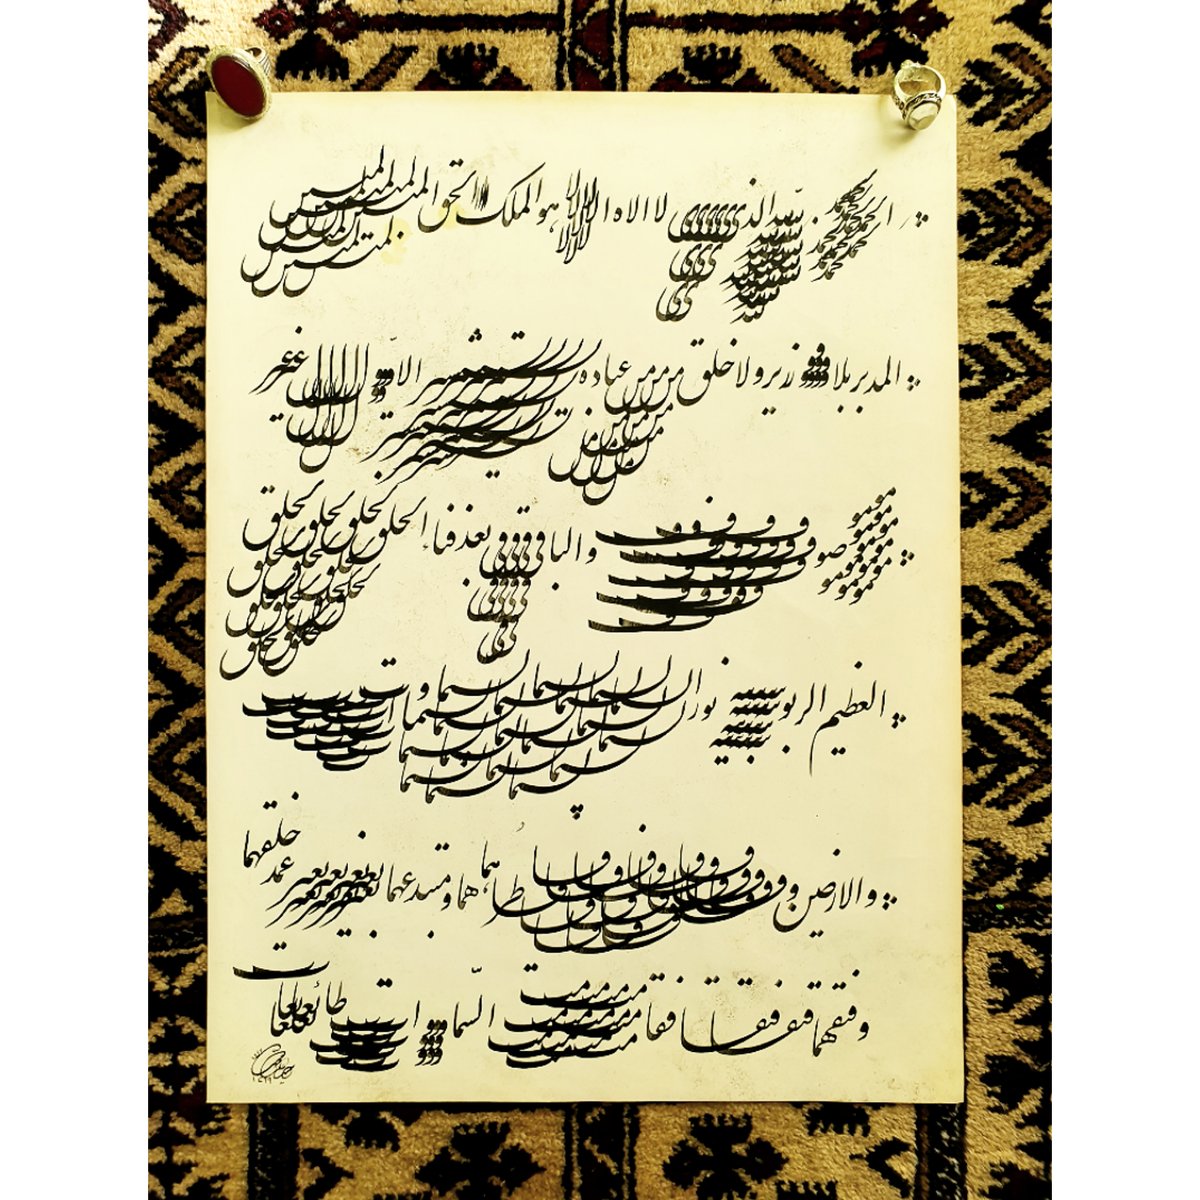 الحمد لله الذی لا اله الا هو الملک الحق المبین
المدبر بلا وزیر ولا خلق من عباده یستشیر الاول غیر
موصوف والباقی بعد فناء الخلق
العظیم الربوبیة نور السماوات
والارضین و فاطرهما و مبتدعهما بغیر عمد خلقهما
وفتقهما فتقا فقامت السّماوات طائعات